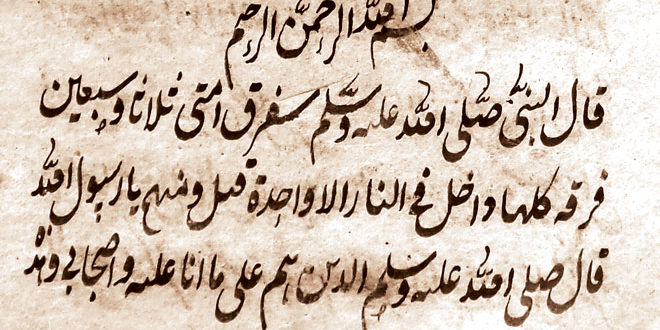 بسم الله الرحمن الرحيم
قال النبي صلى الله عليه وسلم ستفرق امتى ثلاثا وسبعين
فرقه كلها داخل فى النار الا واحدة قيل ومنهم يا رسول الله
قال صلى الله عليه وسلم الذين هم على ما انا عليه واصحابي